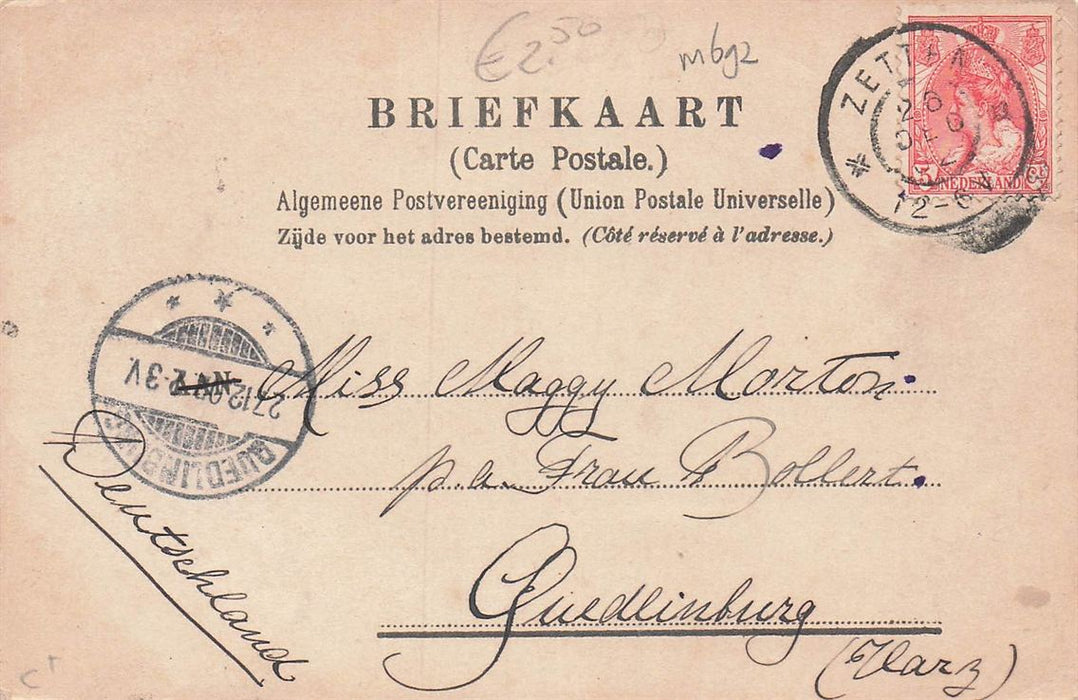 €2.50
m6g2
BRIEFKAART
(Carte Postale.)
Algemeene Postvereeniging (Union Postale Universelle)
Zijde voor het adres bestemd. (Côté réservé à l'adresse.)
ZETTEN
26 DEC
12-6N
5 NEDERLAND Ct
QUEDLINBURG
27.12. 2-3V.
Miss Maggy Morton.
p.a. Frau Bollert.
Quedlinburg
(Harz)
Deutschland